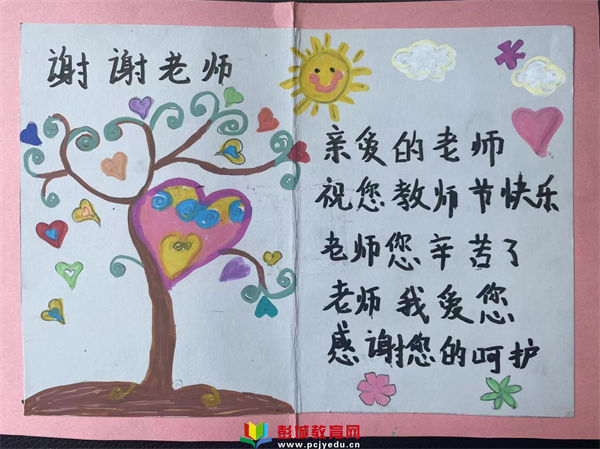 谢谢老师
亲爱的老师
祝您教师节快乐
老师您辛苦了
老师我爱您
感谢您的呵护
彭城教育网
www.pcjyedu.cn